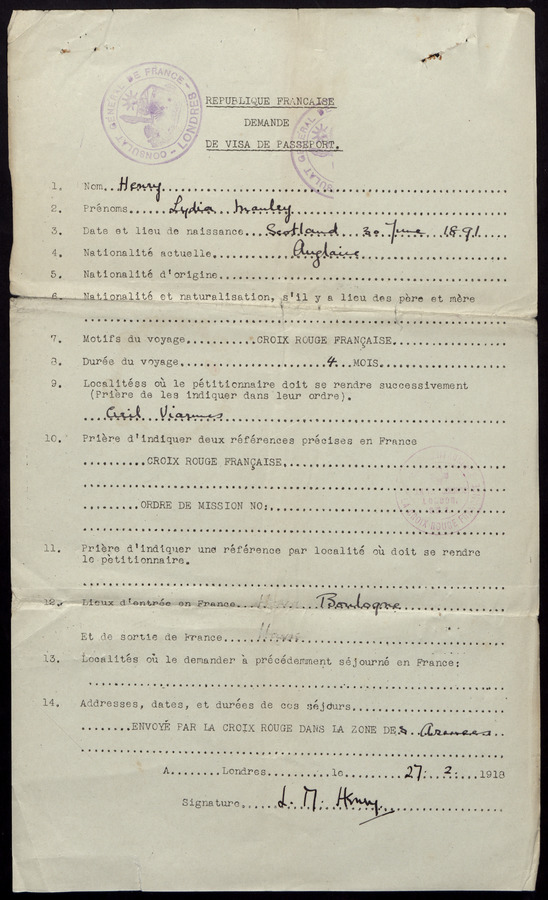 CONSULAT GENERAL DE FRANCE - LONDRES -
REPUBLIQUE FRANCAISE
DEMANDE
DE VISA DE PASSEPORT.
1. Nom...Henry
2. Prénoms......Lydia Manley
3. Date et lieu de naissance...Scotland 30 June 1891
4. Nationalité actuelle...Anglaise
5. Nationalité d'origine
6. Nationalité et naturalisation, s'il y a lieu des père et mère
7. Motifs du voyage...........CROIX ROUGE FRANÇAISE
8. Durée du voyage...4...MOIS
9. Localitéss où le pétitionnaire doit se rendre successivement
(Prière de les indiquer dans leur ordre).
Creil Viarmes
10. Prière d'indiquer deux références précises en France
..........CROIX ROUGE FRANÇAISE
.........ORDRE DE MISSION NO:
LA CROIX ROUGE
11. Prière d'indiquer une référence par localité où doit se rendre
le pètitionnaire.
12. Lieux d'entrée en France...Boulogne
Et de sortie de France
13. Localités où le demander à précédemment séjourné en France:
14. Addresses, dates, et durées de cos séjours
........ENVOYÉ PAR LA CROIX ROUGE DANS LA ZONE DES Armees
A........Londres..........le..........27:.2:...1918
Signature......L. M. Henry